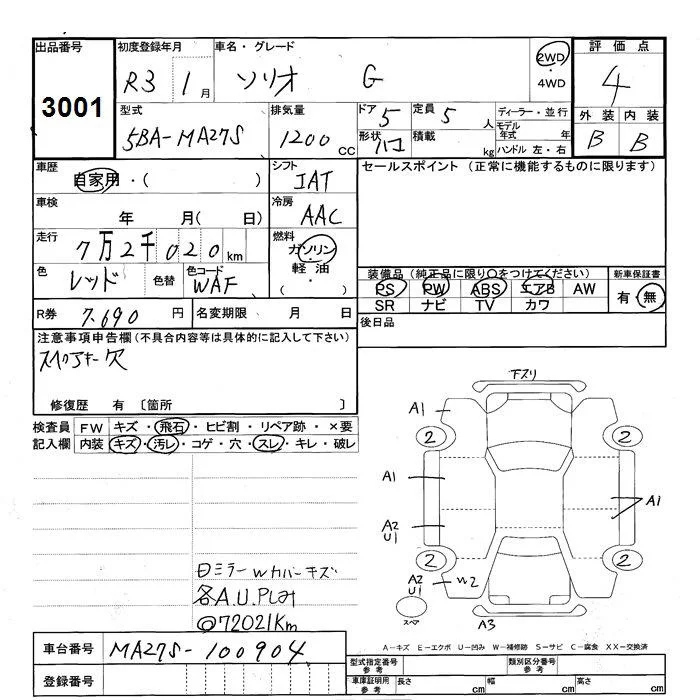 出品番号 初度登録年月 車名・グレード 2WD 評価点
3001 R3 1月 ソリオ G 4WD 4
型式 排気量 ドア 5 定員 5人 ディーラー・並行 外装 内装
5BA-MA27S 1200cc 形状 積載 kg モデル年式 年 B B
ハンドル 左・右
車歴 シフト セールスポイント (正常に機能するものに限ります)
自家用・( ) IAT
車検 冷房
年 月( 日) AAC
走行 燃料
7万2千020km ガソリン
色 色替 色コード 軽油
レッド WAF ( ・ )
装備品 (純正品に限り○をつけてください) 新車保証書
PS PW ABS エアB AW 有・無
SR ナビ TV カワ
R券 7.690円 名変期限 月 日 後日品
注意事項申告欄 (不具合内容等は具体的に記入して下さい)
スペアキー欠
修復歴 有 〔箇所 〕
検査員 FW キズ・飛石・ヒビ割・リペア跡・×要
記入欄 内装 キズ・汚レ・コゲ・穴・スレ・キレ・破レ
下スリ
A1
2 2
A1 A1
A2
U1
2 2
A2 W2
U1
スペア A3
日ミラーwカバーキズ
各A.U.P
@72021Km
A-キズ E-エクボ U-凹み W-補修跡 S-サビ C-腐食 XX-交換済
車台番号 MA27S-100904
型式指定番号 参考 類別区分番号 参考
登録番号
車庫証明用 参考 長さ cm 幅 cm 高さ cm